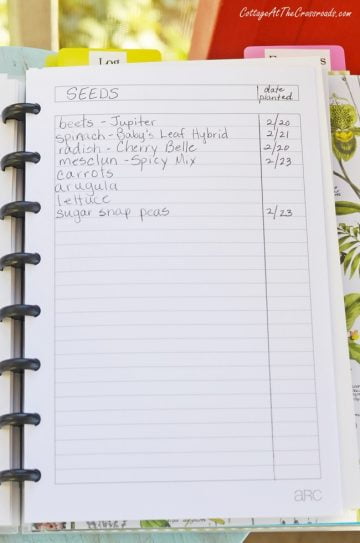 CottageAtTheCrossroads.com
Log
SEEDS
date planted
beets - Jupiter 2/20
spinach - Baby's Leaf Hybrid 2/21
radish - Cherry Belle 2/20
mesclun - Spicy Mix 2/23
carrots
arugula
lettuce
sugar snap peas 2/23
ARC